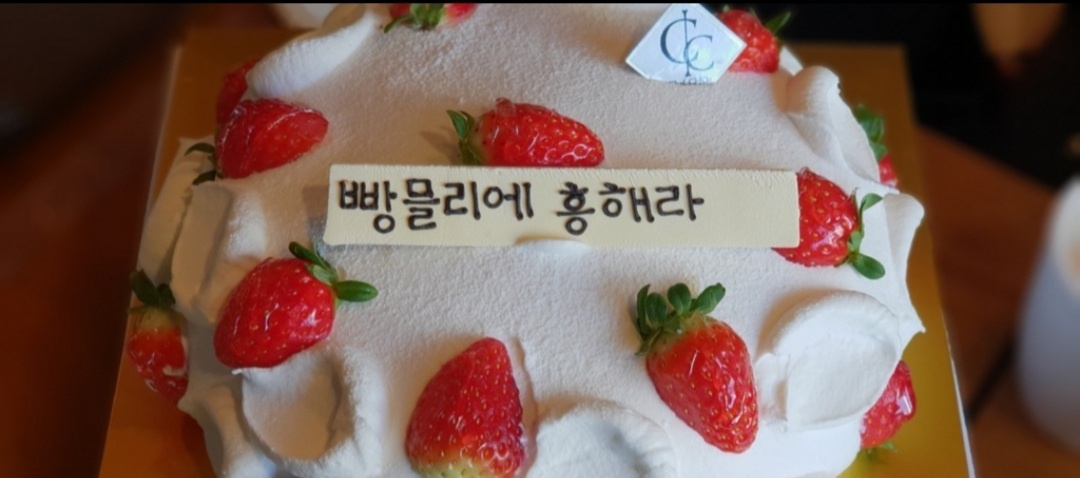 CIC
빵믈리에 흥해라